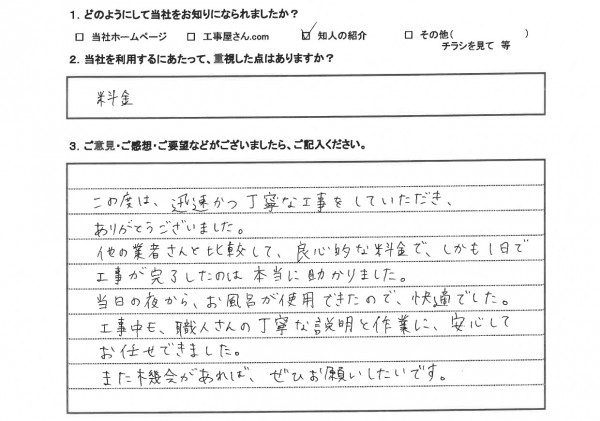 1. どのようにして当社をお知りになられましたか？
□ 当社ホームページ □ 工事屋さん.com ☑ 知人の紹介 □ その他( )
チラシを見て 等
2. 当社を利用するにあたって、重視した点はありますか？
料金
3. ご意見・ご感想・ご要望などがございましたら、ご記入ください。
この度は、迅速かつ丁寧な工事をしていただき、
ありがとうございました。
他の業者さんと比較して、良心的な料金で、しかも1日で
工事が完了したのは本当に助かりました。
当日の夜から、お風呂が使用できたので、快適でした。
工事中も、職人さんの丁寧な説明と作業に、安心して
お任せできました。
また機会があれば、ぜひお願いしたいです。